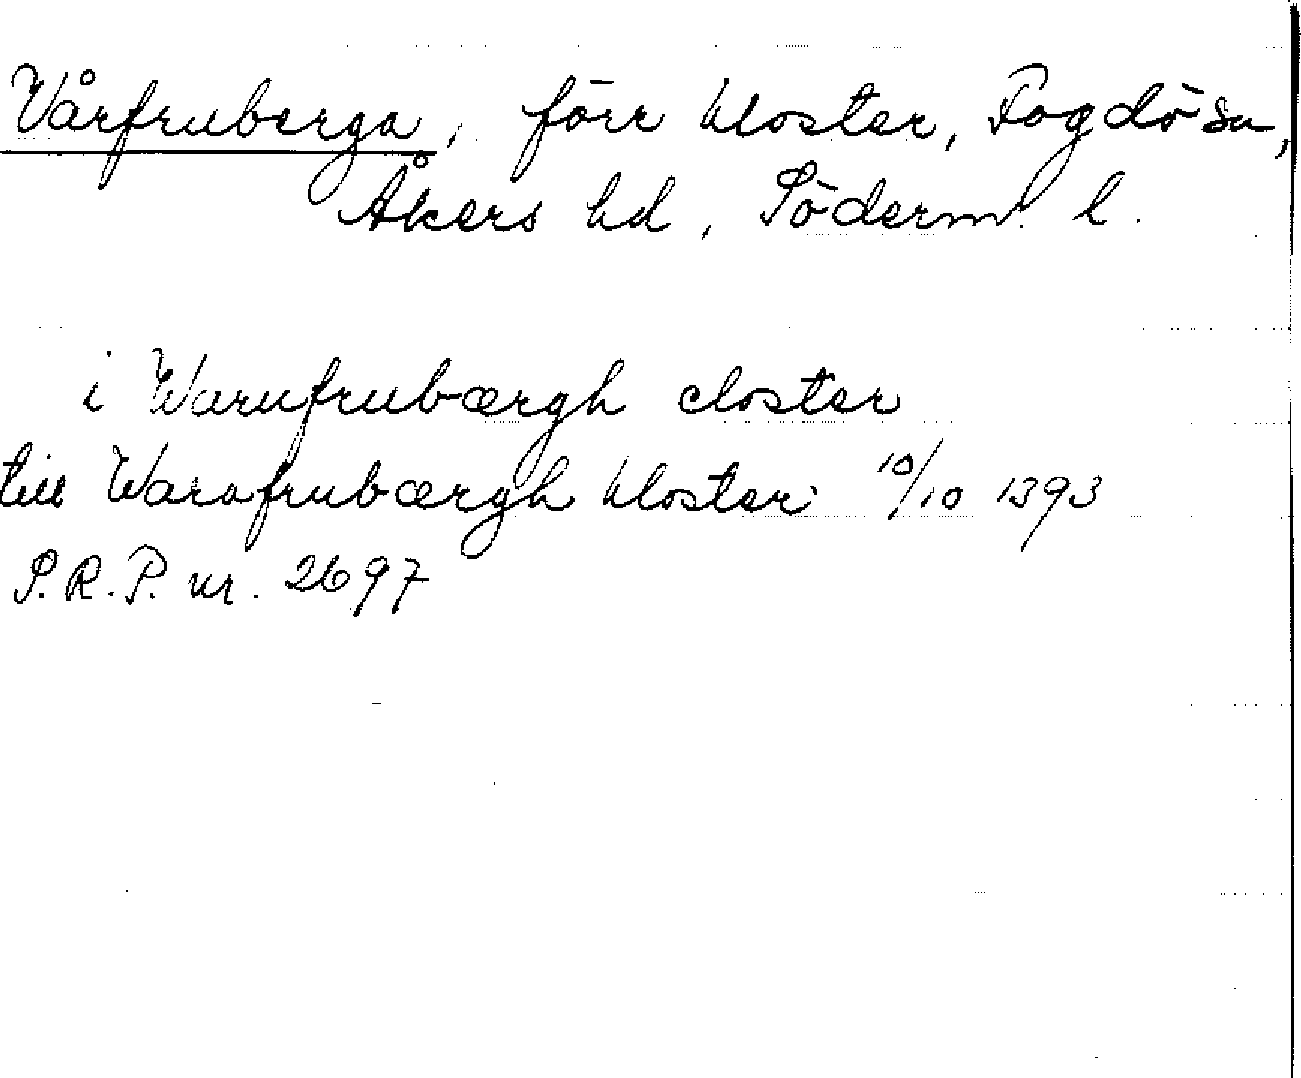 Vårfruberga, förr kloster, Fogdö sn,
Åkers hd, Söderm. l.
i Warufrubærgh closter
till Warafrubærgh kloster 10/10 1393
S.R.P. nr. 2697